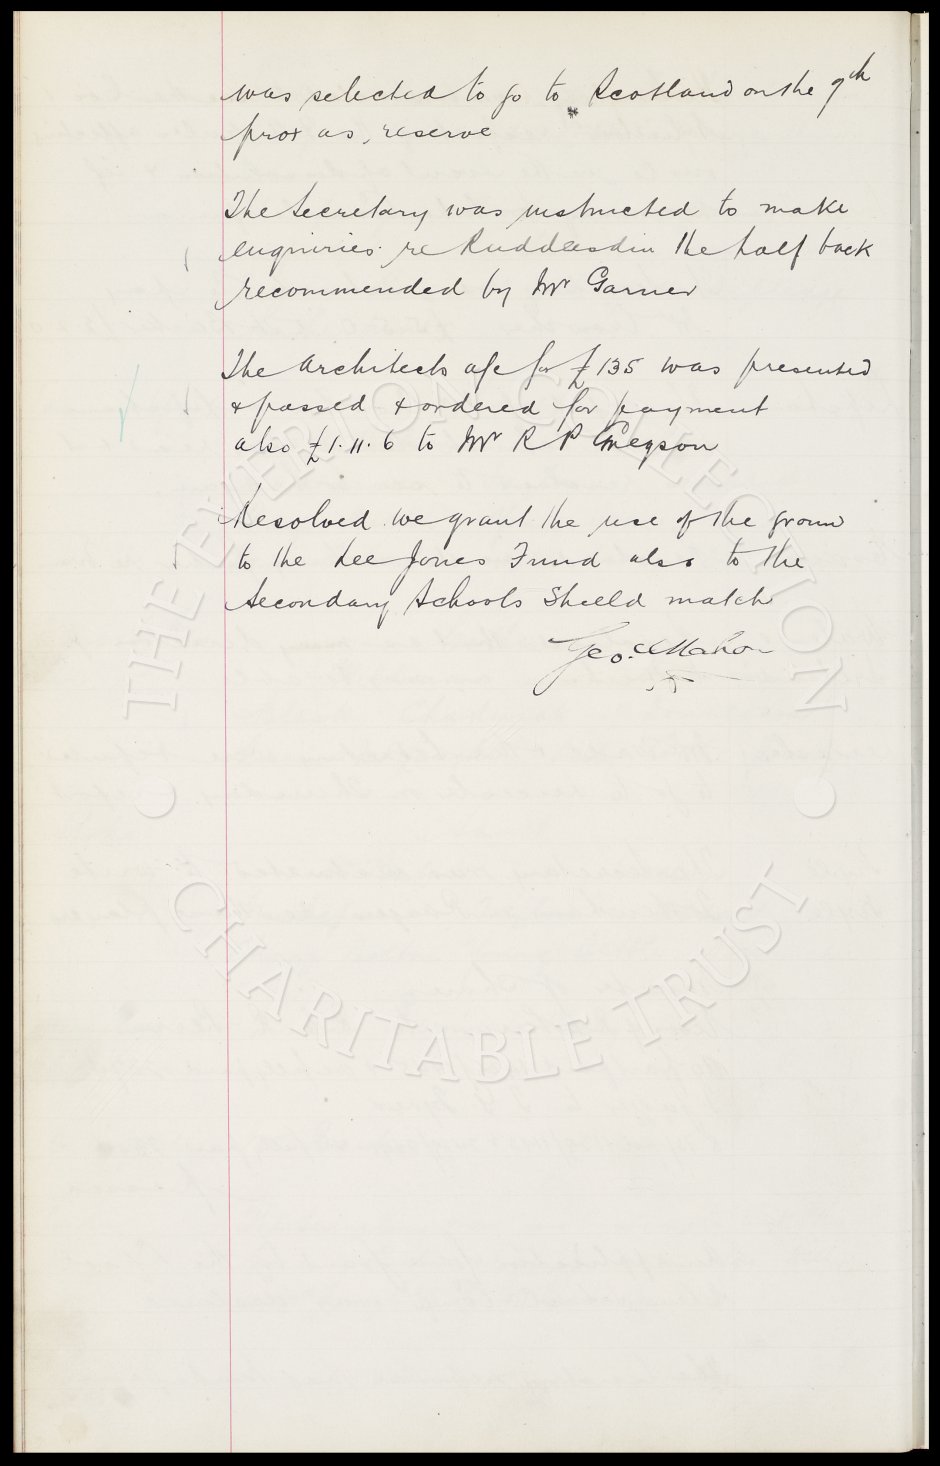 was selected to go to Scotland on the 9th
prox as reserve
The Secretary was instructed to make
enquiries re the half back
recommended by Mr Garner
The Architects a/c for £135 was presented
& passed & ordered for payment
also £1.11.6 to Mr R P Gregson
Resolved we grant the use of the ground
to the Lee Jones Fund also to the
Secondary Schools Shield match
Geo. Mahon
THE EVERTON COLLECTION
CHARITABLE TRUST